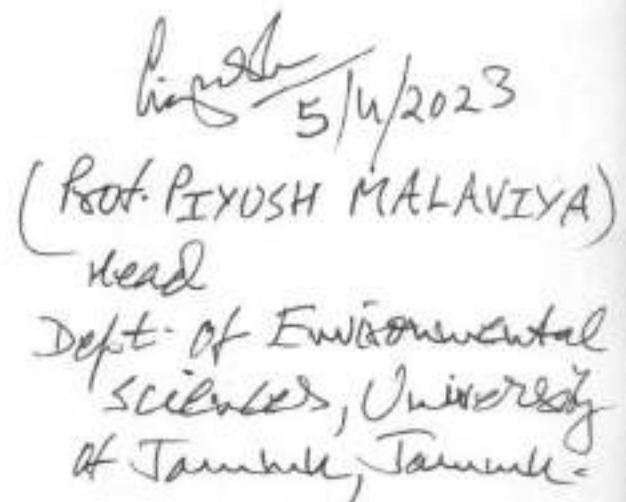 Piyush
5/4/2023
(Prof. PIYUSH MALAVIYA)
Head
Dept. of Environmental
Sciences, University
of Jammu, Jammu.